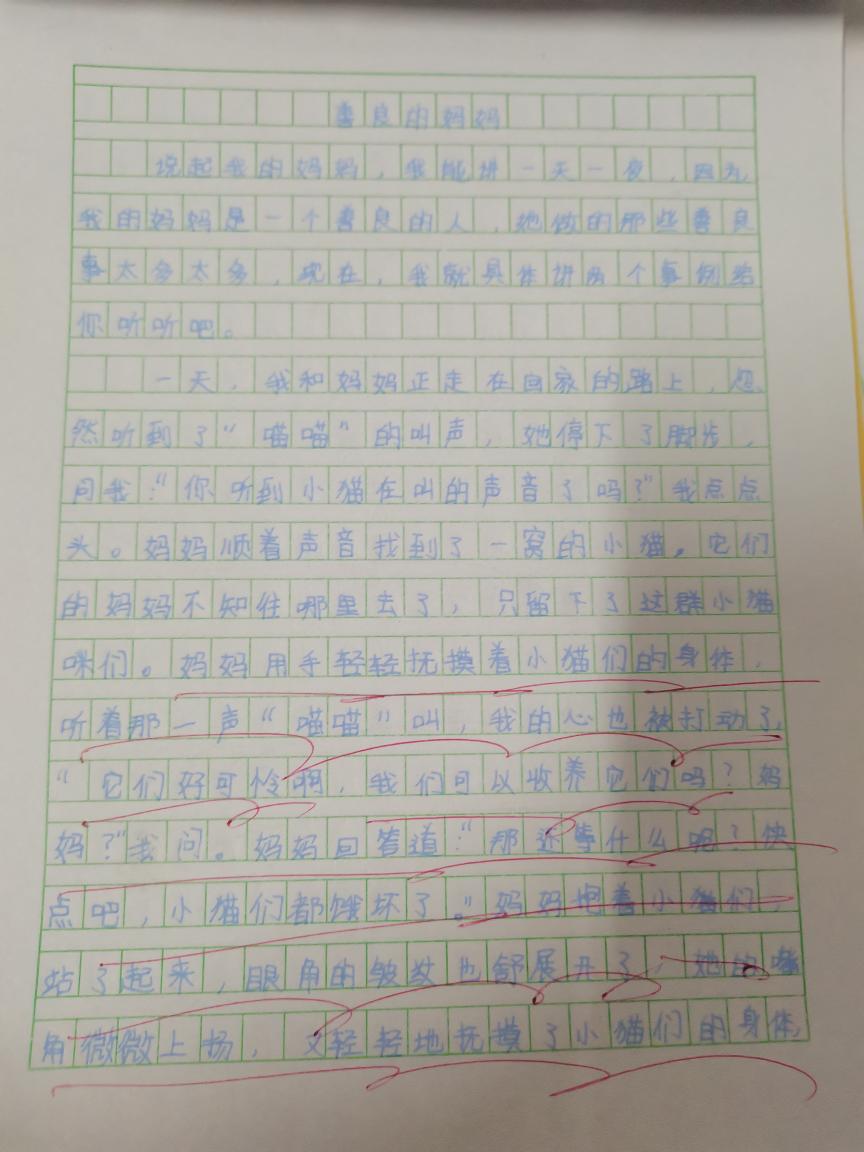 善良的妈妈
说起我的妈妈，我能讲一天一夜，因为
我的妈妈是一个善良的人，她做的那些善良
事太多太多，现在，我就具体讲两个事例给
你听听吧。
一天，我和妈妈正走在回家的路上，忽
然听到了“喵喵”的叫声，她停下了脚步，
问我：“你听到小猫在叫的声音了吗？”我点点
头。妈妈顺着声音找到了一窝的小猫，它们
的妈妈不知住哪里去了，只留下了这群小猫
咪们。妈妈用手轻轻抚摸着小猫们的身体，
听着那一声“喵喵”叫，我的心也被打动了，
“它们好可怜啊，我们可以收养它们吗？妈
妈？”我问。妈妈回答道：“那还等什么呢？快
点吧，小猫们都饿坏了。”妈妈抱着小猫们，
站了起来，眼角的皱纹也舒展开了，她的嘴
角微微上扬，又轻轻地抚摸了小猫们的身体，